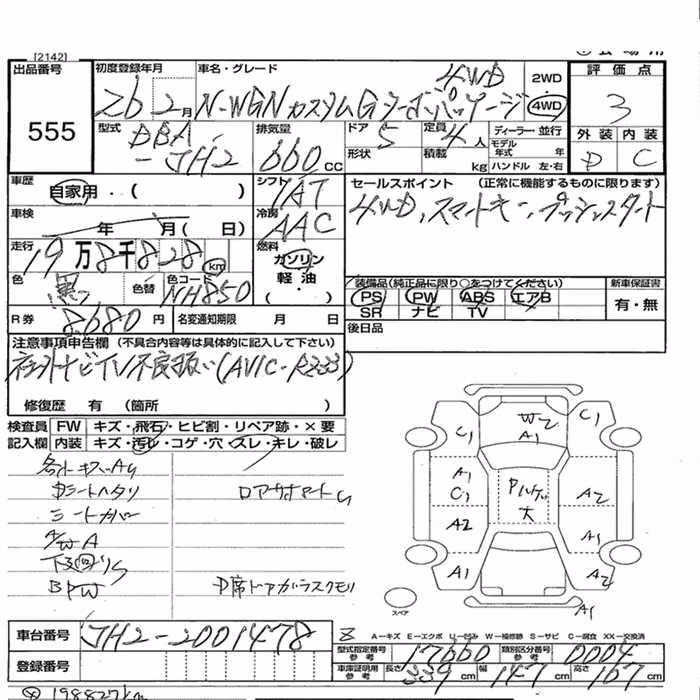 [2142]
出品番号
555
初度登録年月
26 2月
車名・グレード
N-WGNカスタムG ターボパッケージ 4WD
2WD
4WD
評価点
3
外装 内装
D C
型式
DBA-JH2
排気量
660 CC
ドア 5
形状
定員 4人
積載 kg
ディーラー・並行
モデル年式 年
ハンドル 左・右
車歴
自家用・( )
シフト
IAT
セールスポイント (正常に機能するものに限ります)
4WD、スマートキー、プッシュスタート
車検
年 月( 日)
冷房
AAC
走行
19万8千828 km
燃料
ガソリン
軽油・
(・)
色 黒
色替
色コード
NH850
装備品(純正品に限り○をつけてください)
PS PW ABS エアB
SR ナビ TV
新車保証書
有・無
R券 8,680円
名変通知期限 月 日
後日品
注意事項申告欄 (不具合内容等は具体的に記入して下さい)
社外ナビTV不良扱い(AVIC-RZ33)
修復歴 有 (箇所 )
検査員記入欄
FW キズ・飛石・ヒビ割・リペア跡・×要
内装 キズ・汚レ・コゲ・穴・スレ・キレ・破レ
Dシートヘタリ
シートカバー
A/W A
BPW
D席ドアガラスクモリ
C1 W2 A1 C1
A1 C1
A2
A1
A2
A1
A1
A1
スペア
車台番号
JH2-2001478
登録番号
A−キズ E−エクボ U−凹み W−補修跡 S−サビ C−腐食 XX−交換済
型式指定番号 参考 17660
類別区分番号 参考 0004
車庫証明用 参考 長さ 339cm 幅 147cm 高さ 167cm
198827km